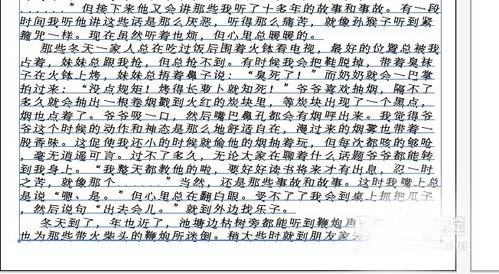 "但接下来他又会讲那些我听了十多年的故事和事故。有一段
时间我听他讲这些话是那么厌恶，听得那么痛苦，就像孙猴子听到紧
箍咒一样。现在虽然听着也烦，但心里总暖暖的。
那些冬天一家人总在吃过饭后围着火钵看电视，最好的位置总被我
占着，妹妹总跟我抢，但总抢不到。有时候我会把鞋脱掉，带着臭袜
子在火钵上烤，妹妹总捂着鼻子说："臭死了！"而奶奶就会一巴掌
拍过来："没点规矩！烤得长萝卜就知死！"爷爷喜欢抽烟，隔不了
多久就会抽出一根卷烟戳到火红的炭块里，等炭块出现了一个黑点，
烟也点着了。爷爷吸一口，然后嘴巴鼻孔都会有烟呼出来。我觉得爷
爷这个时候的动作和神态是那么地舒适自在，漫过来的烟雾也带着一
股香味。这促使我还小的时候就偷他的烟抽着玩，但每次都咳的够呛
，毫无逍遥可言。过不了多久，无论大家在聊着什么话题爷爷都能转
到我身上。"我整天都教他的啦，要好好读书将来才有出息，忍一时
之苦，就像那个......"当然，还是那些事故和故事。这时我嘴上总
是说"嗯、是。"但心里总在翻白眼。受不了了我会到桌上抓把瓜子
，然后说句"出去会儿。"就到外边找乐子。
冬天到了，年也近了，池塘边枯树旁都能听到鞭炮声
也为那些带火柴头的鞭炮所迷倒。稍大些时就到朋友家